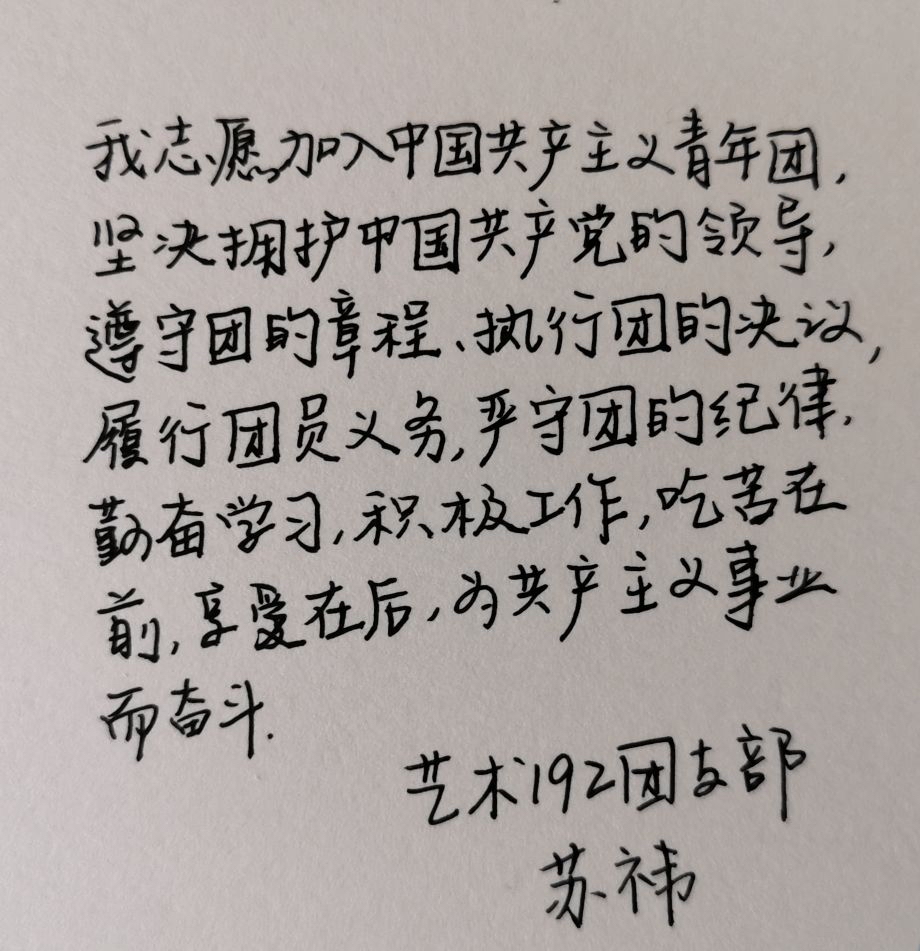 我志愿加入中国共产主义青年团,
坚决拥护中国共产党的领导,
遵守团的章程、执行团的决议,
履行团员义务,严守团的纪律,
勤奋学习,积极工作,吃苦在
前,享受在后,为共产主义事业
而奋斗.
艺术192团支部
苏祎